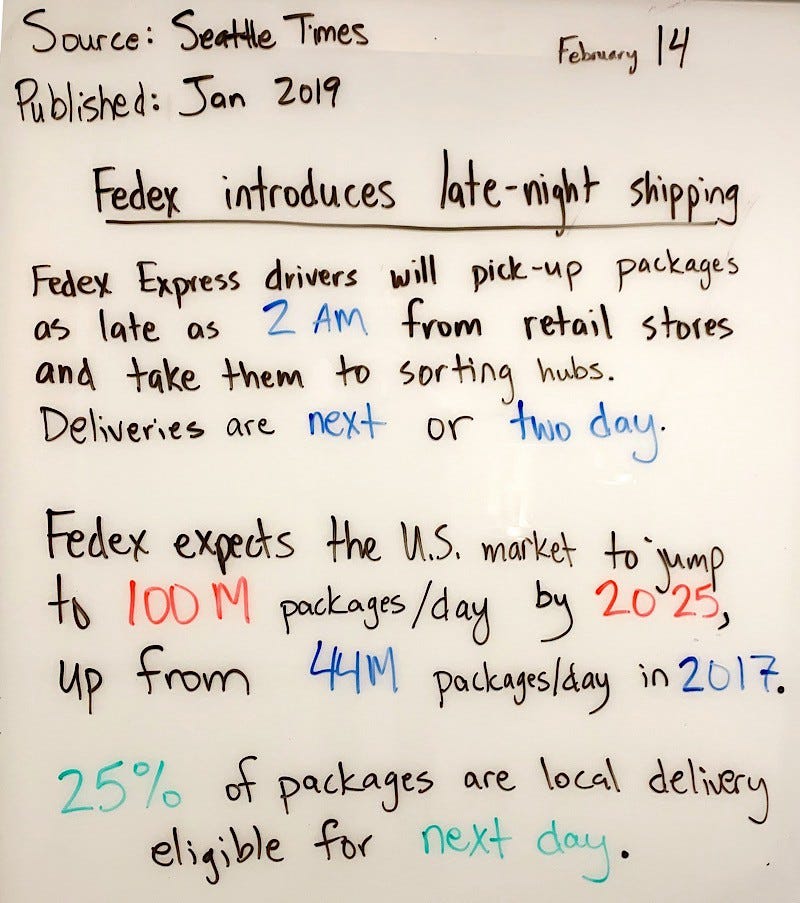 Source: Seattle Times
February 14
Published: Jan 2019
Fedex introduces late-night shipping
Fedex Express drivers will pick-up packages
as late as 2 AM from retail stores
and take them to sorting hubs.
Deliveries are next or two day.
Fedex expects the U.S. market to jump
to 100M packages/day by 2025,
up from 44M packages/day in 2017.
25% of packages are local delivery
eligible for next day.